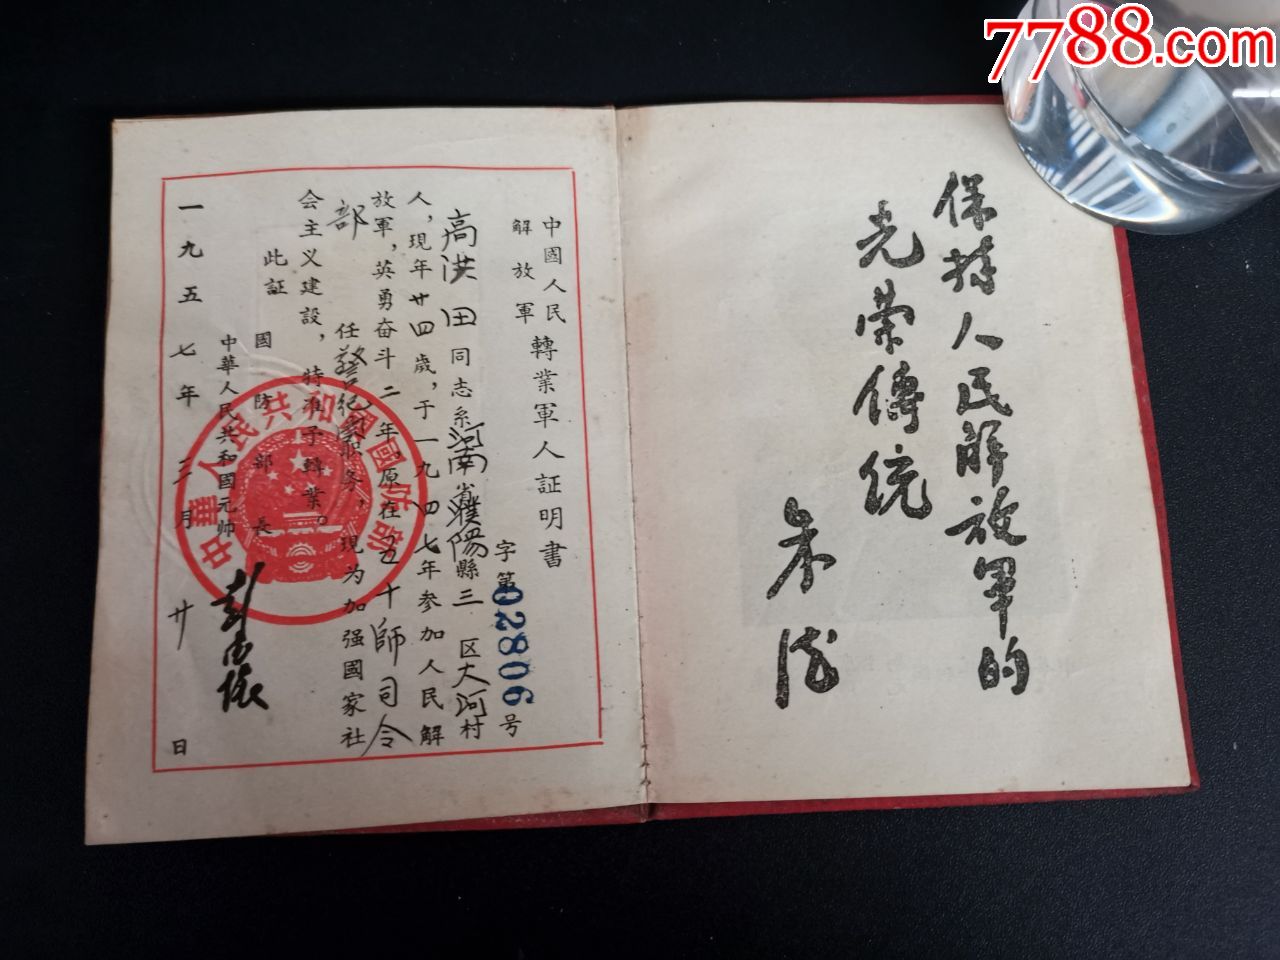 7788.com
保持人民解放军的
光荣傳统
朱德
中國人民
解放軍
轉業軍人証明書
字第02806号
高洪田同志系河南省濮陽縣三区大河村
人，現年廿四歲，于一九四七年参加人民解
放軍，英勇奋斗二年，原在五十師司令
部任警纪職务，現为加强國家社
会主义建設，特准予轉業。
此証
國防部長
中華人民共和國元帅
彭德懷
一九五七年三月廿日
中華人民共和國國防部